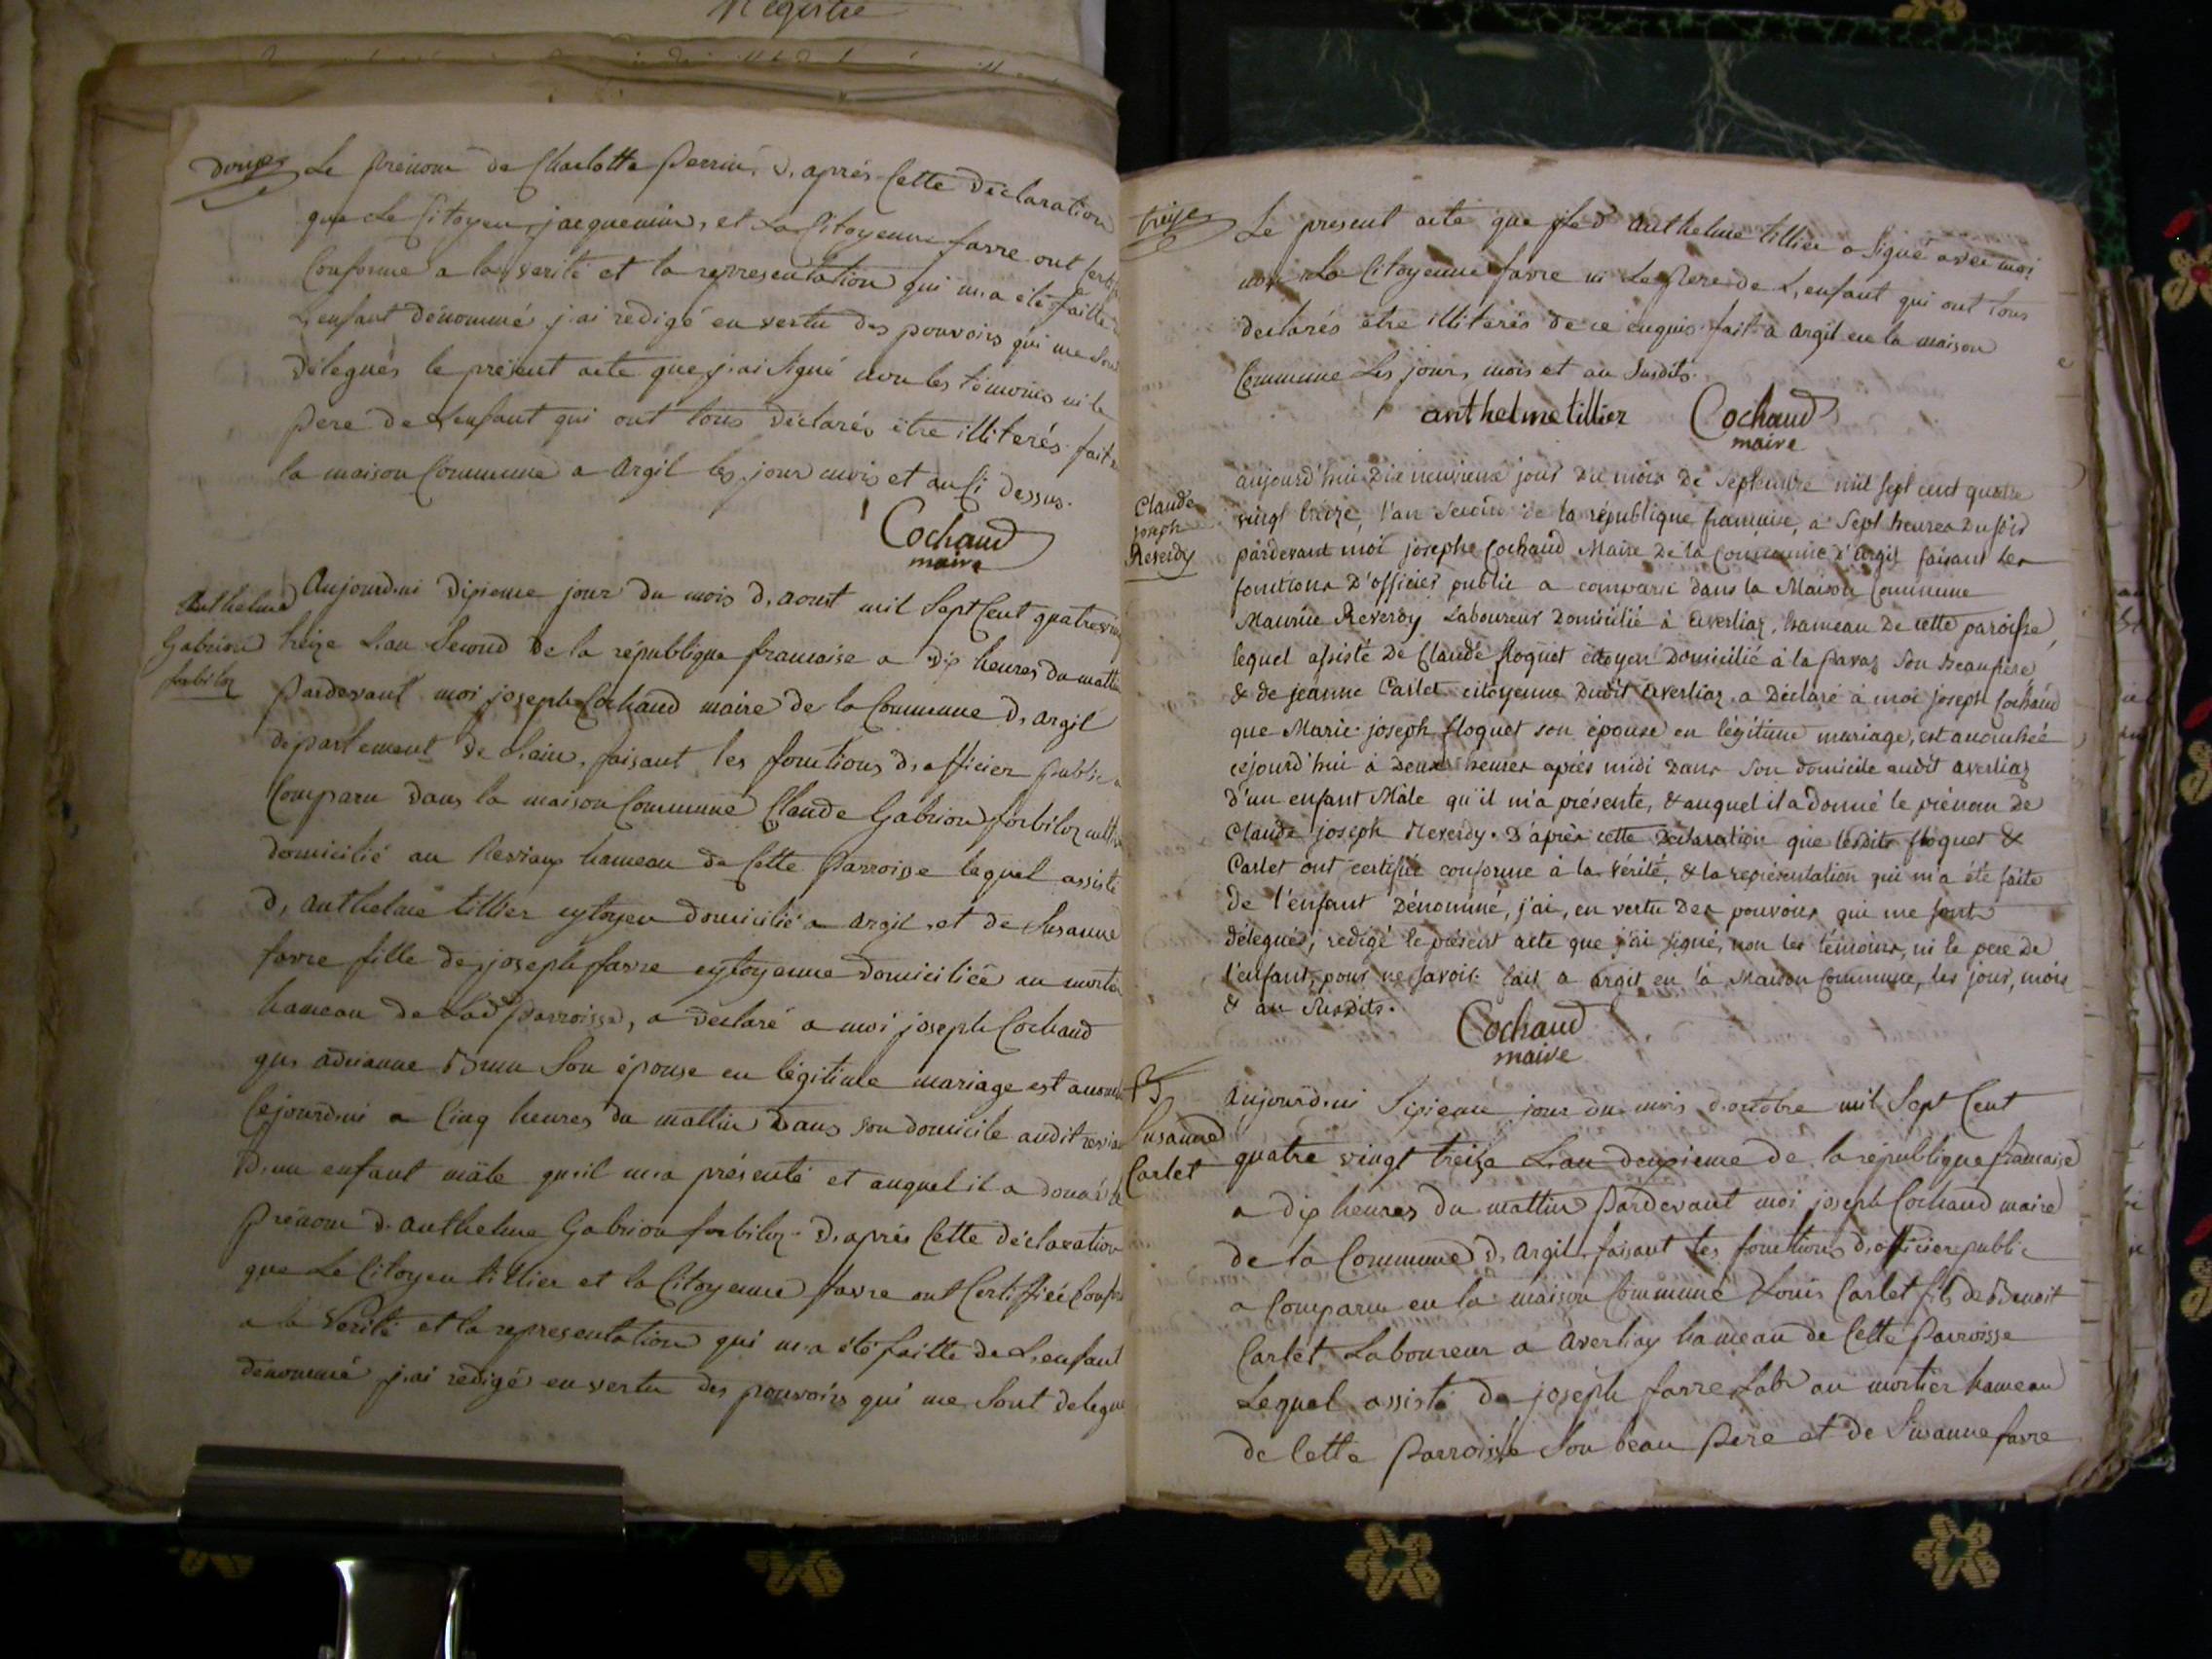 Registre
douze
Le prénom de Charlotte perrin, d, aprés Cette déclaration
que Le Citoyen jacquemin, et La Citoyenne favre ont
Conforme a la verité et la representation qui m,a été faitte
L,enfant dénommé j,ai redigé en vertu des pouvoirs qui me sont
délegués le présent acte que j,ai signé non les témoins ni le
pere de L,enfant qui ont tous déclarés être illiterés fait
la maison Commune a argil les jour mois et an Ci dessus.
Cochaud
maire
Anthelme
Gabrion
forbiloz
Aujourd,ui dixieme jour du mois d, aoust mil Sept Cent quatre
treize L,an Second de la république francaise a dix heures du
pardevant moi joseph Cochaud maire de la Commune d, argil
département de L,ain, faisant les fonctions d, officier public
Comparu dans la maison Commune Claude Gabrion forbiloz
domicilié au hameau de Cette parroisse lequel assisté
d, anthelme tillier cytoyen domicilié a argil, et de Susanne
favre fille de joseph favre cytoyenne domiciliée au
hameau de Lad parroisse, a declaré a moi joseph Cochaud
que adrianne Brun Son épouse en légitime mariage est
Cejourd,ui a Cinq heures du mattin dans son domicile audit
d,un enfant mâle qu,il m,a présenté et auquel il a donné le
prénom d, anthelme Gabrion forbiloz. d, aprés Cette déclaration
que Le Citoyen tillier et la Citoyenne favre ont Certifiée
a la Verité et la representation qui m,a été faitte de L,enfant
dénommé j,ai redigé en vertu des pouvoirs qui me Sont
treize
Le present acte que led anthelme tillier a signé avec moi
non La Citoyenne favre ni Le pere de L,enfant qui ont tous
declarés être illiterés de ce enquis. fait a argil en la maison
Commune Les jour, mois et an Susdits.
anthelme tillier Cochaud
maire
Claude
joseph
Reverdy
aujourd'hui dix neuvieme jour du mois de Septembre mil sept cent quatre
vingt treize, l'an Second de la république francaise, a Sept heures du soir
pardevant moi josephe Cochaud Maire de la Commune d'argil faisant les
fonctions d'officier public a comparu dans la Maison Commune
Maurice Reverdy Laboureur domicilié à averliaz, hameau de cette paroisse,
lequel assisté de Claude floquet citoyen domicilié à la pavaz son beaupere,
& de jeanne Carlet citoyenne dudit averliaz, a déclaré à moi joseph Cochaud
que Marie joseph floquet son épouse en légitime mariage, est accouchée
cejourd'hui à deux heures après midi dans Son domicile audit averliaz
d'un enfant Mâle qu'il m'a présenté, & auquel il a donné le prénom de
Claude joseph Reverdy. D'après cette Déclaration que lesdits floquet &
Carlet ont certifié conforme à la vérité, & la représentation qui m'a été faite
de l'enfant dénommé, j'ai, en vertu des pouvoirs qui me sont
délegués, redigé le présent acte que j'ai signé, non les témoins, ni le pere de
l'enfant, pour ne savoir. fait a argit en la Maison Commune, les jour, mois
& an Susdits.
Cochaud
maire
Susanne
Carlet
Aujourd,ui Sixieme jour du mois d,octobre mil Sept Cent
quatre vingt treize L,an deuxieme de la république francaise
a dix heures du mattin pardevant moi joseph Cochaud maire
de la Commune d, argil faisant les fonctions d,officier public
a Comparu en la maison Commune Louis Carlet fils de Benoit
Carlet Laboureur a averliaz hameau de Cette parroisse
Lequel assisté de joseph favre Lab au mortier hameau
de Cette parroisse Son beau pere et de Susanne favre